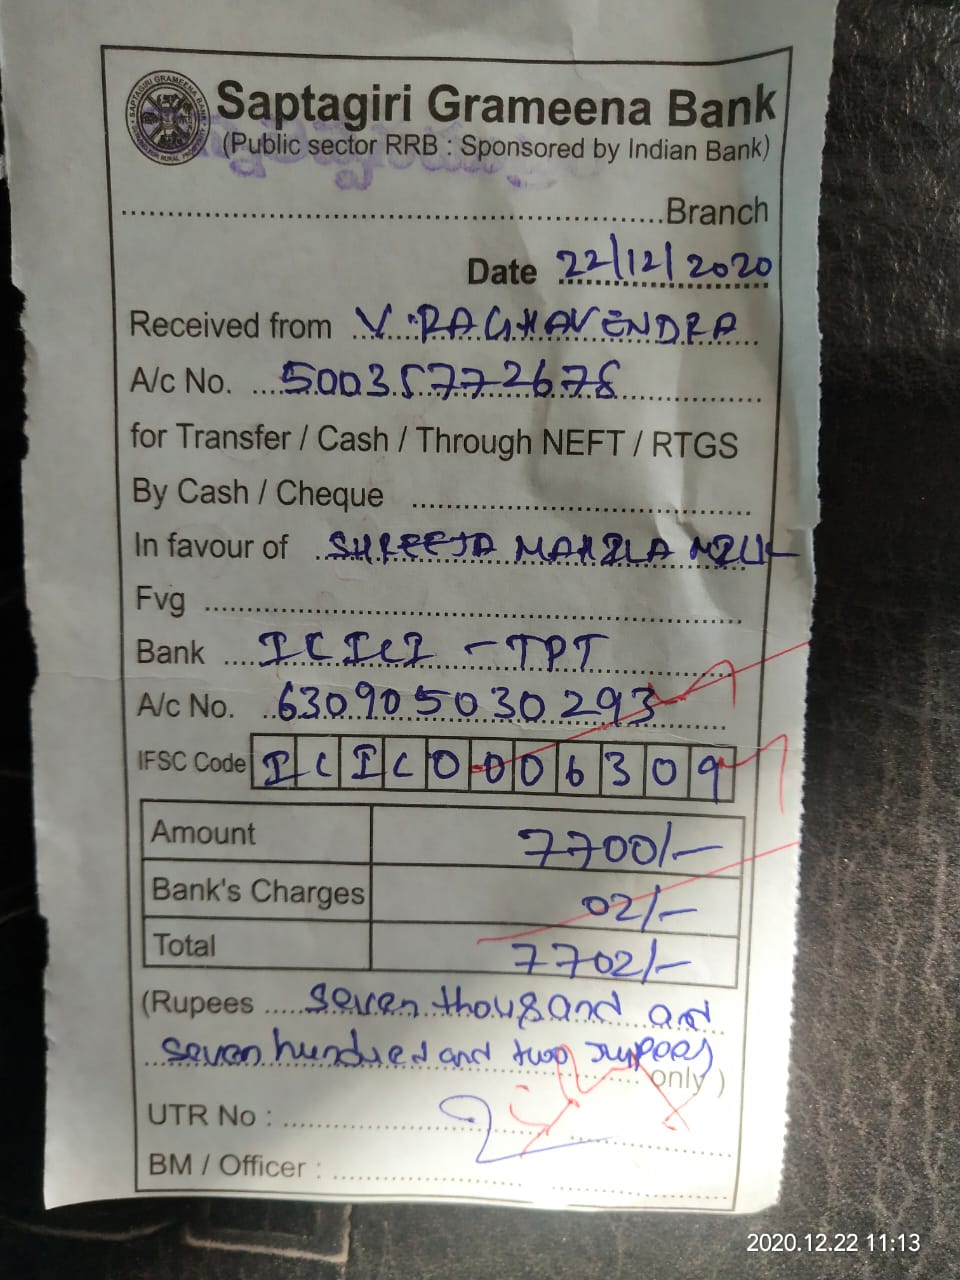 Saptagiri Grameena Bank
(Public sector RRB : Sponsored by Indian Bank)
Branch
Date 22/12/2020
Received from V. RAGHAVENDRA
A/c No. 50035772678
for Transfer / Cash / Through NEFT / RTGS
By Cash / Cheque
In favour of SHREEJA MAHILA MILK
Fvg
Bank ICICI - TPT
A/c No. 630905030293
IFSC Code ICIC0006309
Amount 7700/-
Bank's Charges 02/-
Total 7702/-
(Rupees seven thousand and
seven hundred and two rupees
only )
UTR No :
BM / Officer :
2020.12.22 11:13